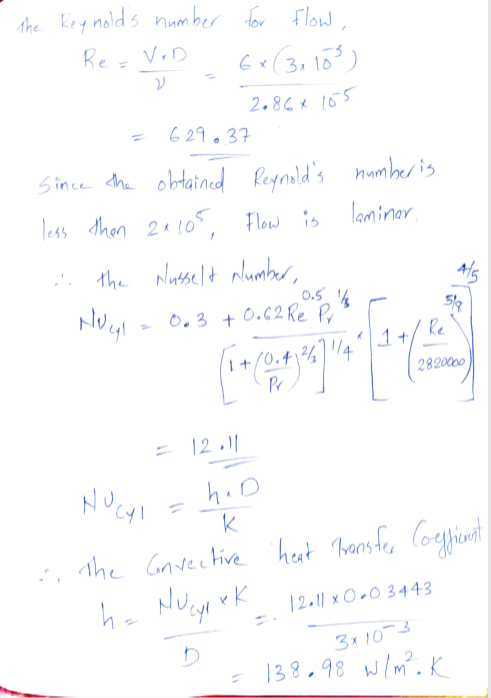 The Reynolds number for flow,
Re = V.D / ν = 6 x (3 x 10^-3) / 2.86 x 10^-5
= 629.37
Since the obtained Reynold's number is
less than 2 x 10^5, Flow is laminar.
∴ the Nusselt Number,
Nu_cyl = 0.3 + 0.62 Re^0.5 Pr^1/3 / [1 + (0.4/Pr)^2/3]^1/4 * [1 + (Re/2820000)^5/8]^4/5
= 12.11
Nu_cyl = h x D / K
∴ The Convective heat transfer Coefficient
h = Nu_cyl x K / D = 12.11 x 0.03443 / 3 x 10^-3
= 138.98 W/m². K